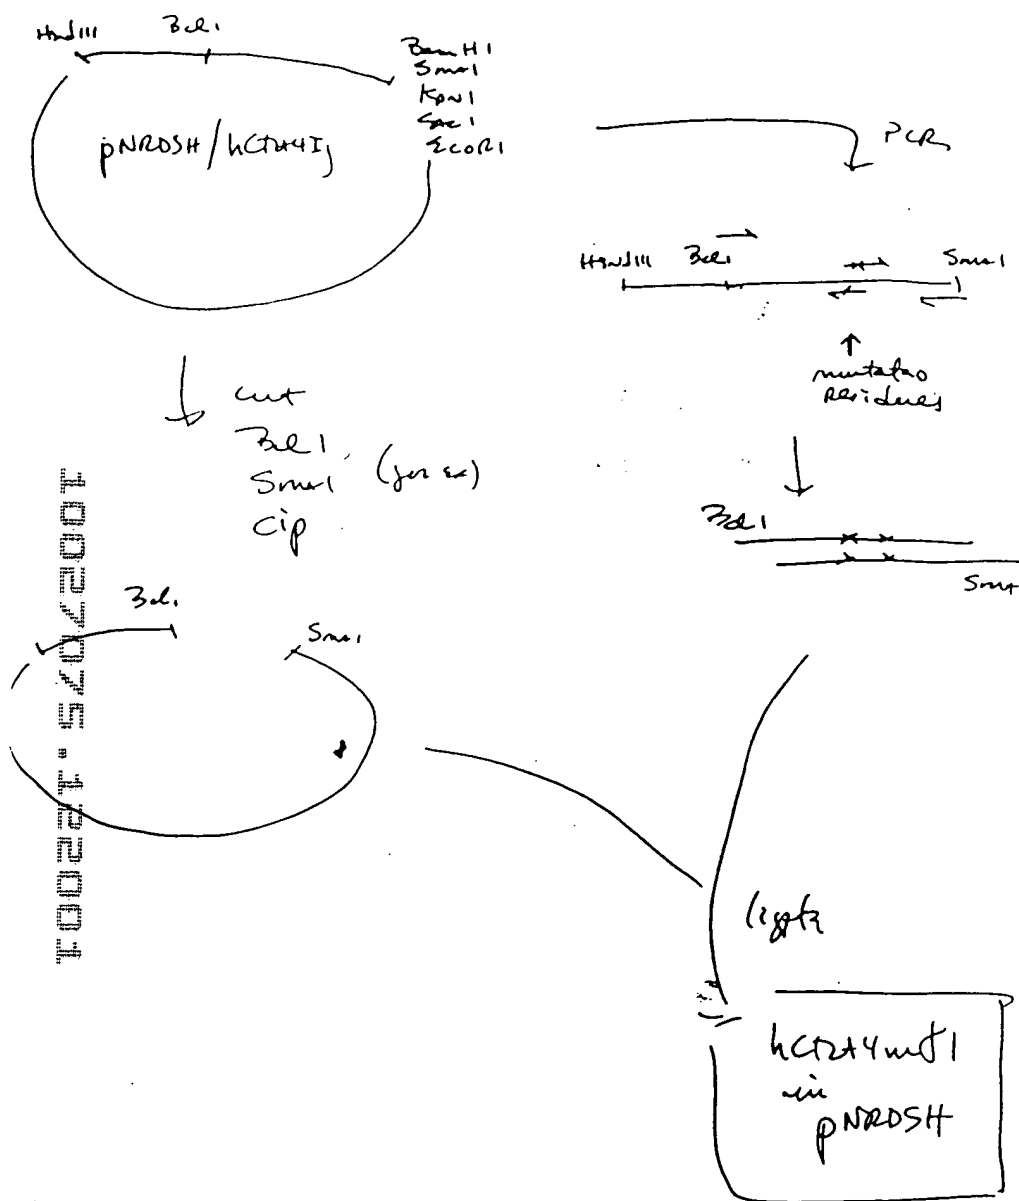 HindIII
Bcl1
BamH1
Sma1
Kpn1
Sac1
EcoR1
pNRDSH/hCTLA4Ig
PCR
HindIII
Bcl1
Sma1
residues
cut
Bcl1
Sma1 (for ex)
cip
Bcl1
Sma1
Bcl1
Sma1
in
pNRDSH
10027075.122001